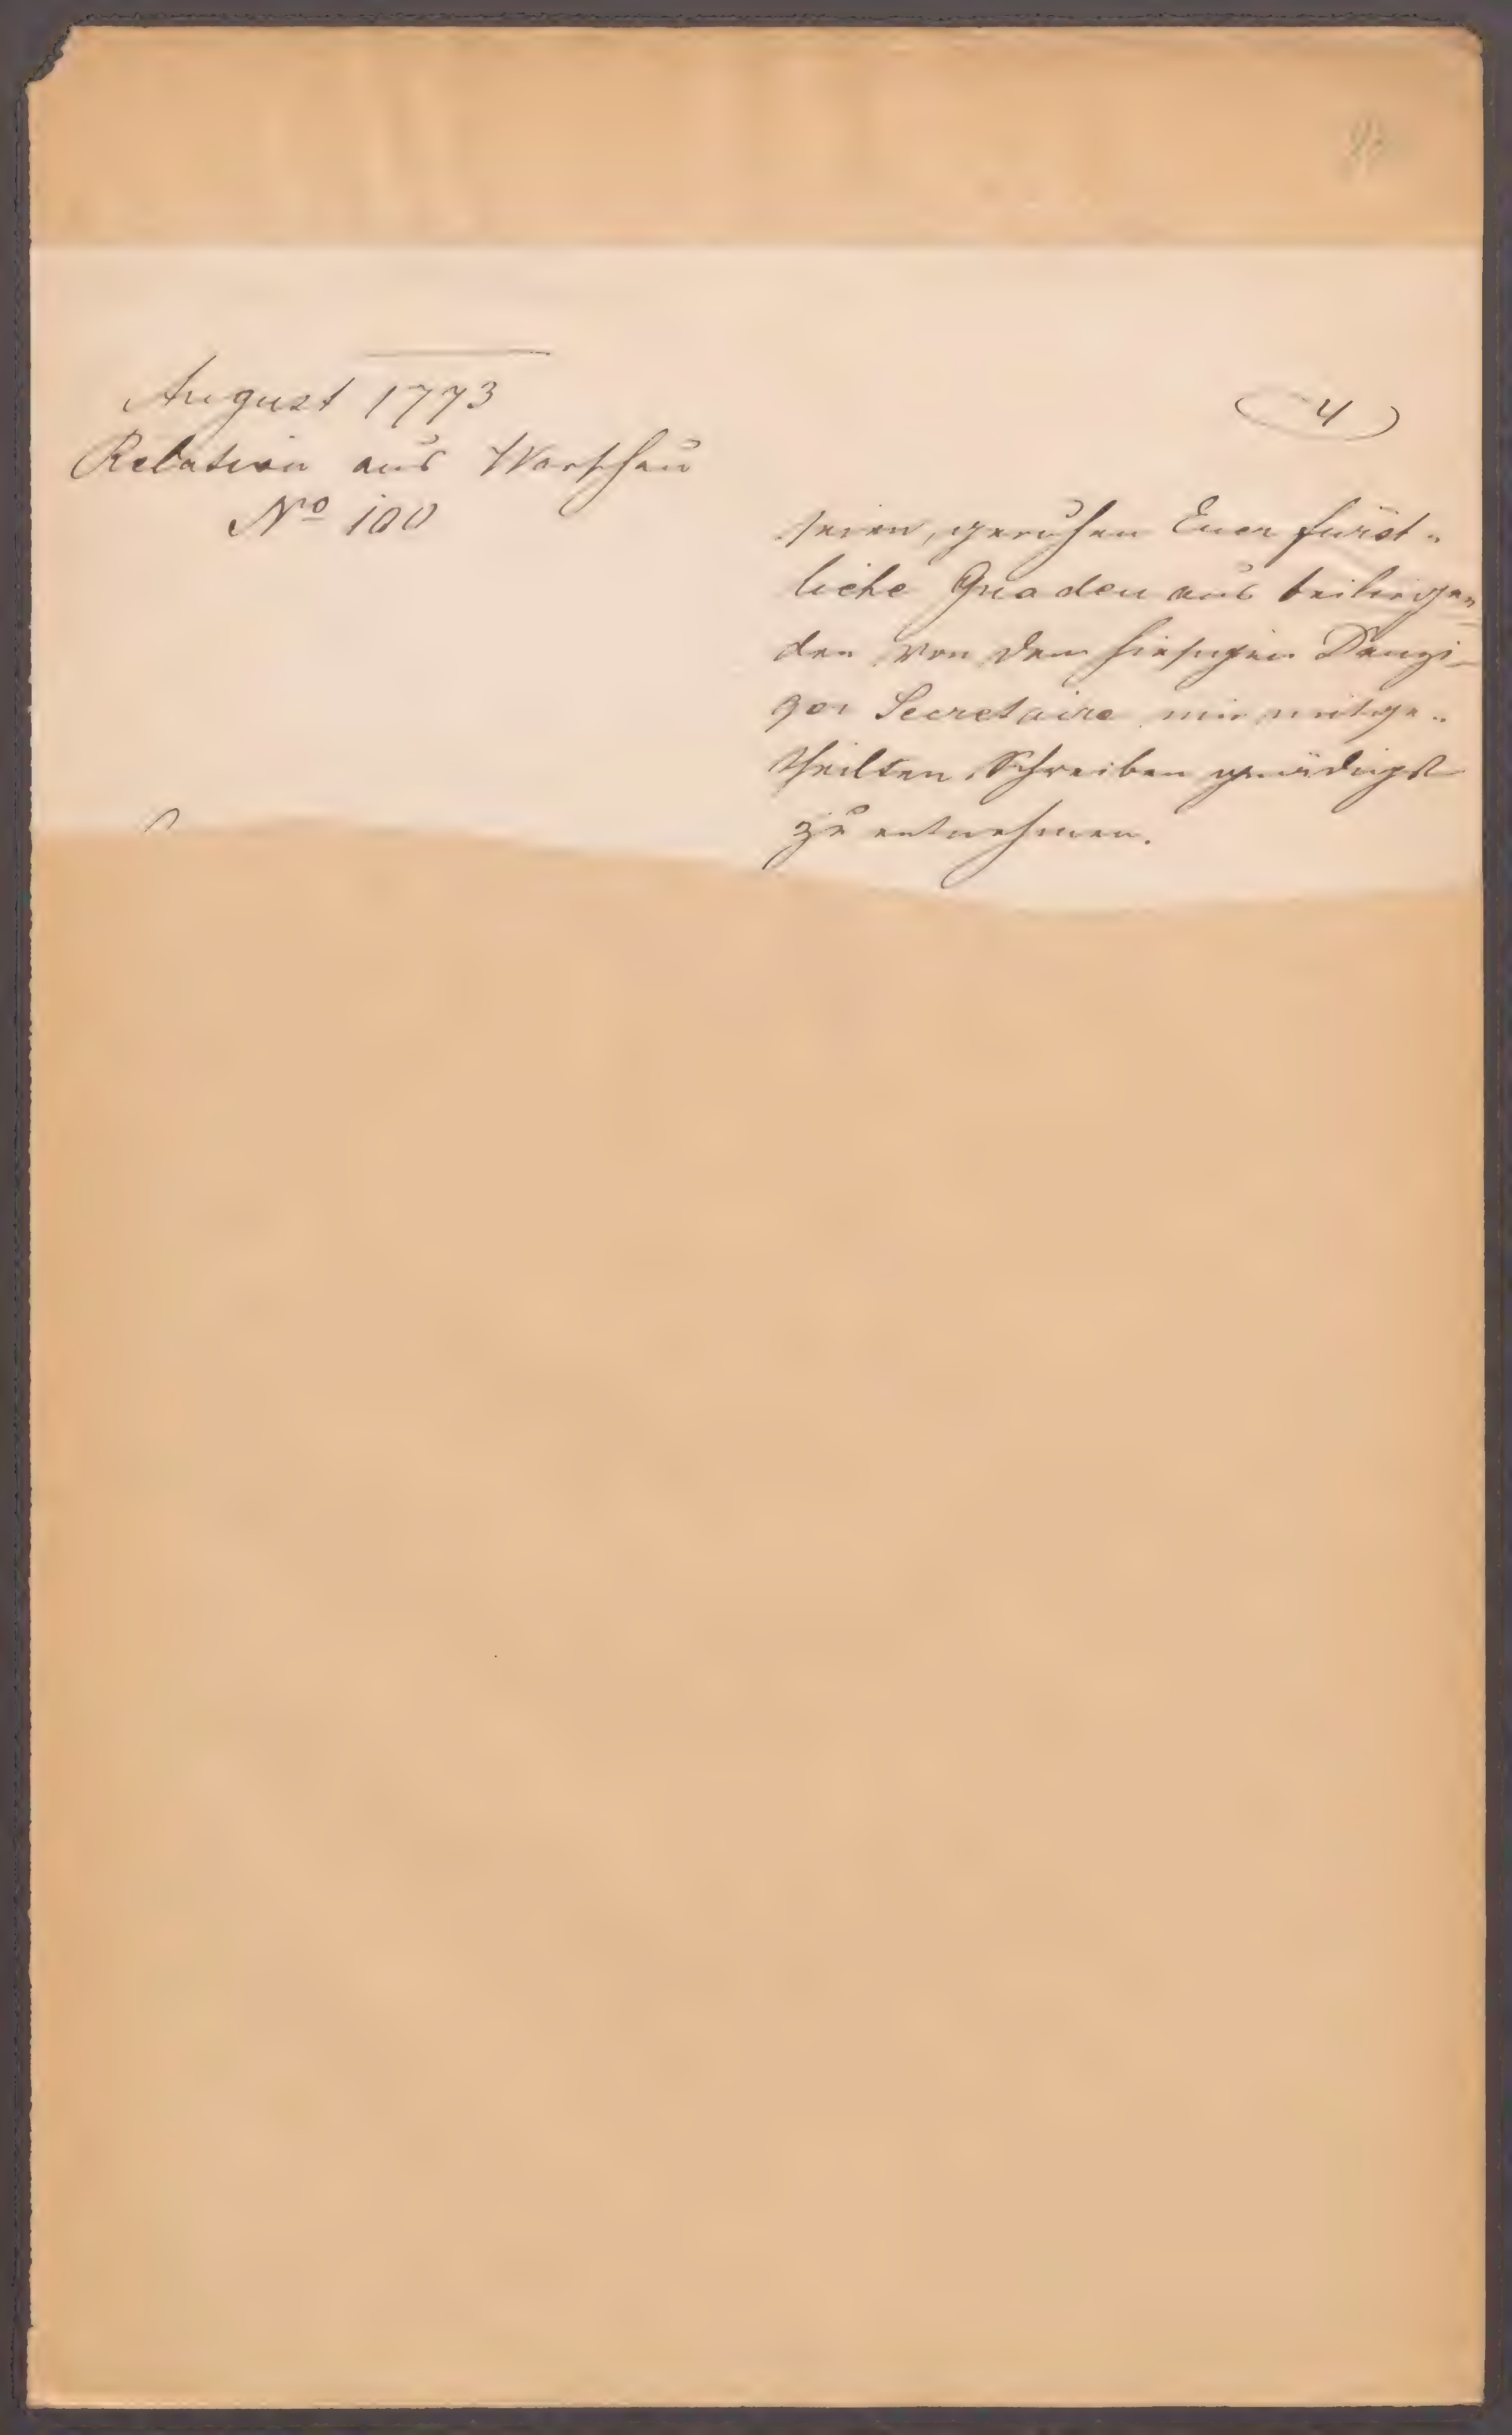 August 1773
Relation aus Warschau
Nº 100
(4)
seien, geruhen Euer fürst-
liche Gnaden aus beiliegen-
den von dem hiesigen Danzi-
ger Secretaire mir mitge-
theilten Schreiben gnädigst
zu entnehmen.